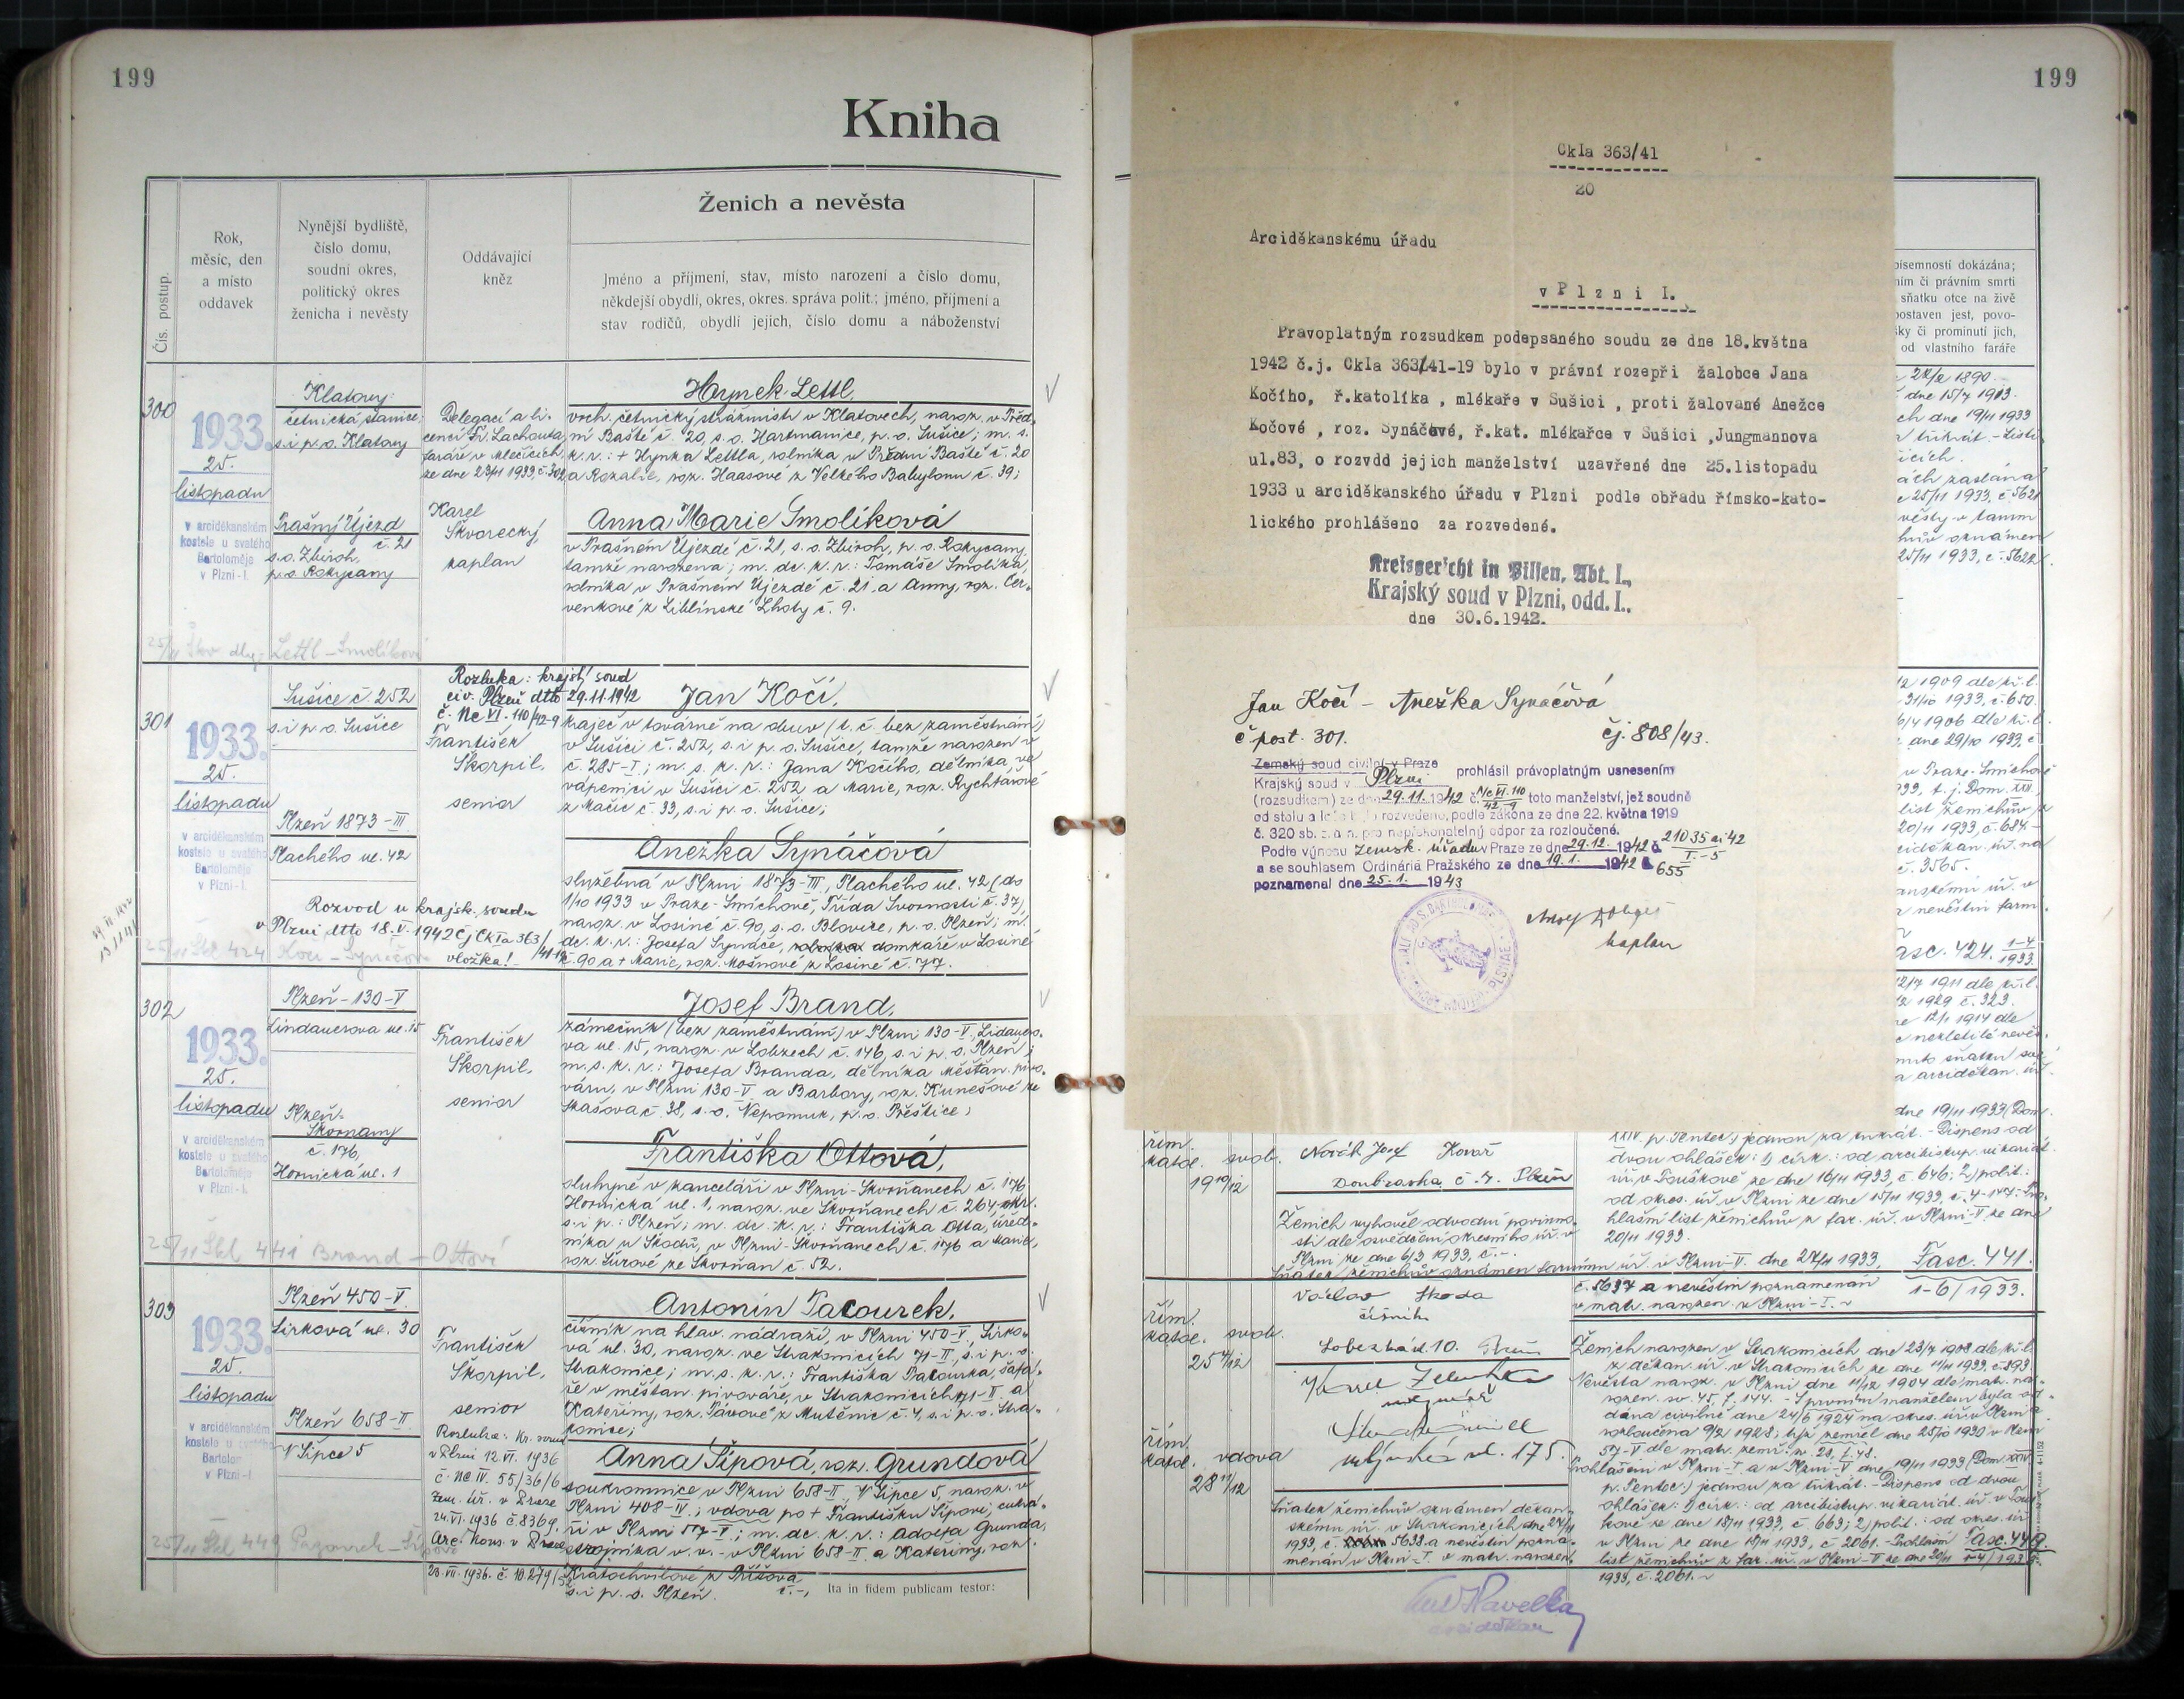 199
Kniha
Čís. postup.
Rok,
měsíc, den
a místo
oddavek
Nynější bydliště,
číslo domu,
soudní okres,
politický okres
ženicha i nevěsty
Oddávající
kněz
Ženich a nevěsta
Jméno a příjmení, stav, místo narození a číslo domu,
někdejší obydlí, okres, okres. správa polit.; jméno, příjmení a
stav rodičů, obydlí jejich, číslo domu a náboženství
300
1933.
25.
listopadu
v arciděkanském
kostele u svatého
Bartoloměje
v Plzni-I.
Klatovy
četnická stanice;
s. i p. o. Klatovy
Prašný Újezd
č. 21
s. o. Zbiroh,
p. o. Rokycany
Delegací a li-
cencí Fr. Lachouta,
faráře v Mlečicích,
ze dne 23/11 1933, č. 302
Karel
Škvorecký,
kaplan
Hynek Lettl,
vrch. četnický strážmistr v Klatovech, naroz. v Před-
ní Baště č. 20, s. o. Hartmanice, p. o. Sušice; m. s.
k. r.: + Hynka Lettla, rolníka v Přední Baště č. 20
a Rozalie, roz. Haasové z Velkého Babylonu č. 39;
Anna Marie Smolíková
v Prašném Újezdě č. 21, s. o. Zbiroh, p. o. Rokycany,
tamže narozena; m. dc. k. r.: Tomáše Smolíka,
rolníka v Prašném Újezdě č. 21, a Anny, roz. Čer-
venkové z Liblínské Lhoty č. 9.
Lettl – Smolíková
301
1933.
25.
listopadu
v arciděkanském
kostele u svatého
Bartoloměje
v Plzni-I.
Sušice č. 252
s. i p. o. Sušice
Plzeň 1873-III
Plachého ul. 42
Rozluka: krajský soud
civ. Plzeň dtto 29.11.1942
č. Nc VI. 110/42-9
František
Škorpil,
senior
Rozvod u krajsk. soudu
v Plzni dtto 18.V.1942 čj CkIa 363/
41-19
vložka!
Jan Kočí,
kraječ v továrně na obuv (t. č. bez zaměstnání)
v Sušici č. 252, s. i p. o. Sušice, tamže narozen v
č. 285-I; m. s. k. r.: Jana Kočího, dělníka ve
vápenici v Sušici č. 252 a Marie, roz. Rychtářové
z Mačic č. 33, s. i p. o. Sušice;
Anežka Synáčová
služebná v Plzni 1873-III, Plachého ul. 42 (do
1/10 1933 v Praze-Smíchově, Třída Svornosti č. 37),
naroz. v Losiné č. 90, s. o. Blovice, p. o. Plzeň; m.
dc. k. r.: Josefa Synáče, domkáře v Losiné
č. 90 a + Marie, roz. Mošnové z Losiné č. 77.
302
1933.
25.
listopadu
v arciděkanském
kostele u svatého
Bartoloměje
v Plzni-I.
Plzeň-130-V
Lindauerova ul. 15
Plzeň-
Skvrňany
č. 176,
Hornická ul. 1
František
Škorpil,
senior
Josef Brand,
zámečník (bez zaměstnání) v Plzni 130-V, Lidauero-
va ul. 15, naroz. v Lobzech č. 146, s. i p. o. Plzeň;
m. s. k. r.: Josefa Branda, dělníka měšťan. pivo-
váru, v Plzni 130-V a Barbory, roz. Kunešové ze
Skašova č. 38, s. o. Nepomuk, p. o. Přeštice;
Františka Ottová,
služným v kanceláři v Plzni-Skvrňanech č. 176
Hornická ul. 1, naroz. ve Skvrňanech č. 264, okr.
s. i p.: Plzeň; m. dc. k. r.: Františka Otta, úřed-
níka u Škodů, v Plzni-Skvrňanech č. 176 a Marie,
roz. Šůrové ze Skvrňan č. 52.
25/11 Škl 441 Brand – Ottová
303
1933.
25.
listopadu
v arciděkanském
kostele u svatého
Bartolom
v Plzni-I.
Plzeň 450-V
Sirková ul. 30
Plzeň 658-II
V Šipce 5
František
Škorpil,
senior
Rozluka: Kr. soud
v Plzni 12.VI. 1936
č. Nc IV. 55/36/6
Zem. úř. v Praze
24.VI.1936 č. 8369.
Arc. kons. v Praze
23.VII.1936. č. 10.279/
Antonín Pacourek,
číšník na hlav. nádraží, v Plzni 450-V, Sirko-
vá ul. 30, naroz. ve Strakonicích 71-II, s. i p. o.
Strakonice; m. s. k. r.: Františka Pacourka, šafá-
ře v měšťan. pivováře, v Strakonicích 71-II a
Kateřiny, roz. Pávové z Mutěnic č. 4, s. i p. o. Stra-
konice;
Anna Šípová, roz. Grundová
soukromnice v Plzni 658-II, V Šipce 5, naroz. v
Plzni 408-IV; vdova po + Františku Šípovi, cukrá-
ři v Plzni 57-V; m. dc. k. r.: Adolfa Grunda,
strojníka v. v. - v Plzni 658-II a Kateřiny, roz.
Kratochvílové z Příšova
č. –, s. i p. o. Plzeň.
Ita in fidem publicam testor:
199
CkIa 363/41
20
Arciděkanskému úřadu
v Plzni I.
Pravoplatným rozsudkem podepsaného soudu ze dne 18.května
1942 č.j. CkIa 363/41-19 bylo v právní rozepři žalobce Jana
Kočího, ř.katolíka , mlékaře v Sušici , proti žalované Anežce
Kočové , roz. Synáčové, ř.kat. mlékařce v Sušici ,Jungmannova
ul.83, o rozvdd jejich manželství uzavřené dne 25.listopadu
1933 u arciděkanského úřadu v Plzni podle obřadu římsko-kato-
lického prohlášeno za rozvedené.
Kreisgericht in Pilsen, Abt. I.,
Krajský soud v Plzni, odd. I.,
dne 30.6.1942.
Jan Kočí – Anežka Synáčová
č. post. 301. čj. 808/43.
Zemský soud civilní v Praze
Krajský soud v Plzni prohlásil právoplatným usnesením
(rozsudkem) ze dne 29.11. 1942 č. Nc VI. 110/42-9 toto manželství, jež soudně
od stolu a lože bylo rozvedeno, podle zákona ze dne 22. května 1919
č. 320 sb. z. a n. pro nepřekonatelný odpor za rozloučené.
Podle výnosu zemsk. úřadu v Praze ze dne 29.12. 1942 č. 21035 ai 42/I.-5
a se souhlasem Ordinária Pražského ze dne 19.1. 1942 č. 655
poznamenal dne 25.1. 1943
kaplan
písemností dokázána;
ním či právním smrti
sňatku otce na živě
postaven jest, povo-
ky či prominutí jich,
od vlastního faráře
1890.
dne 15/7 1903.
ch dne 19/11 1933
třikrát. – Listi
icích.
ách zaslána
25/11 1933, č. 5621
věsty v tamm
25/11 1933, č. 5622.
1909 dle kř. l.
31/10 1933, č. 650.
6/4 1906 dle kř. l.
dne 29/10 1933, č.
v Praze-Smíchově
933, t. j. Dom. XXII.
list ženichův z
20/11 1933, č. 684.–
č. 3565.
v nevěstin farm.
asc. 424. 1-4/1933.
1911 dle kř. l.
1929 č. 323.
12/1 1914 dle
nezletilé nevěs.
a arciděkan. úř.
dne 19/11 1933 (Dom.
XXIV. p. Pentec.) jednou za třikrát. – Dispens od
dvou ohlášek: 1) círk.: od arcibiskup. vikariát.
úř. v Touškově ze dne 16/11 1933, č. 646; 2) polit.:
od okres. úř. v Plzni ze dne 15/11 1933, č. 4-147; Pro-
hlašní list ženichův z far. úř. v Plzni-V. ze dne
20/11 1933.
Fasc. 441.
1-6/1933.
řím.
katol. svob.
19 10/12
Novák Josef Kovář
Doubravka č. 7. Plzeň
Ženich vyhověl odvodní povinno-
sti dle osvědčení okresního úř. v
Plzni ze dne 6/3 1933, č. –.
Sňatek ženichův oznámen farnímu úř. v Plzni-V. dne 27/11 1933,
č. 5637 a nevěstin poznamenán
v matr. narozen. v Plzni-I.
řím.
katol. svob.
25 4/12
Václav Škoda
číšník
Lobezská ul. 10. Plzeň
řím.
katol. vdova
28 11/12
ul. 175.
Sňatek ženichův oznámen děkan-
skému úř. v Strakonicích dne 27/11
1933, č. 5638 a nevěstin pozna-
menán v Plzni-I. v matr. narozen.
Ženich narozen v Strakonicích dne 23/7 1908 dle kř. l.
z děkan. úř. v Strakonicích ze dne 11/11 1933, č. 393.
Nevěsta naroz. v Plzni dne 11/12 1904 dle matr. na-
rozen. sv. 45, f. 144. S prvním manželem byla od-
dána civilně dne 24/5 1924 na okres. úř. v Plzni a
rozloučena 9/2 1928; týž zemřel dne 25/10 1930 v Plzni
57-V dle matr. zemř. sv. 28, f. 48.
Prohlášeni v Plzni-I. a v Plzni-V dne 19/11 1933 (Dom. XXIV.
p. Pentec.) jednou za třikrát. – Dispens od dvou
ohlášek: 1) círk.: od arcibiskup. vikariát. úř. v Touš-
kově ze dne 18/11 1933, č. 663; 2) polit.: od okres. úř.
v Plzni ze dne 18/11 1933, č. 2061. – Prohlašní
list ženichův z far. úř. v Plzni-V ze dne 20/11
1933, č. 2061.
Fasc. 449.
Havelka
arciděkan